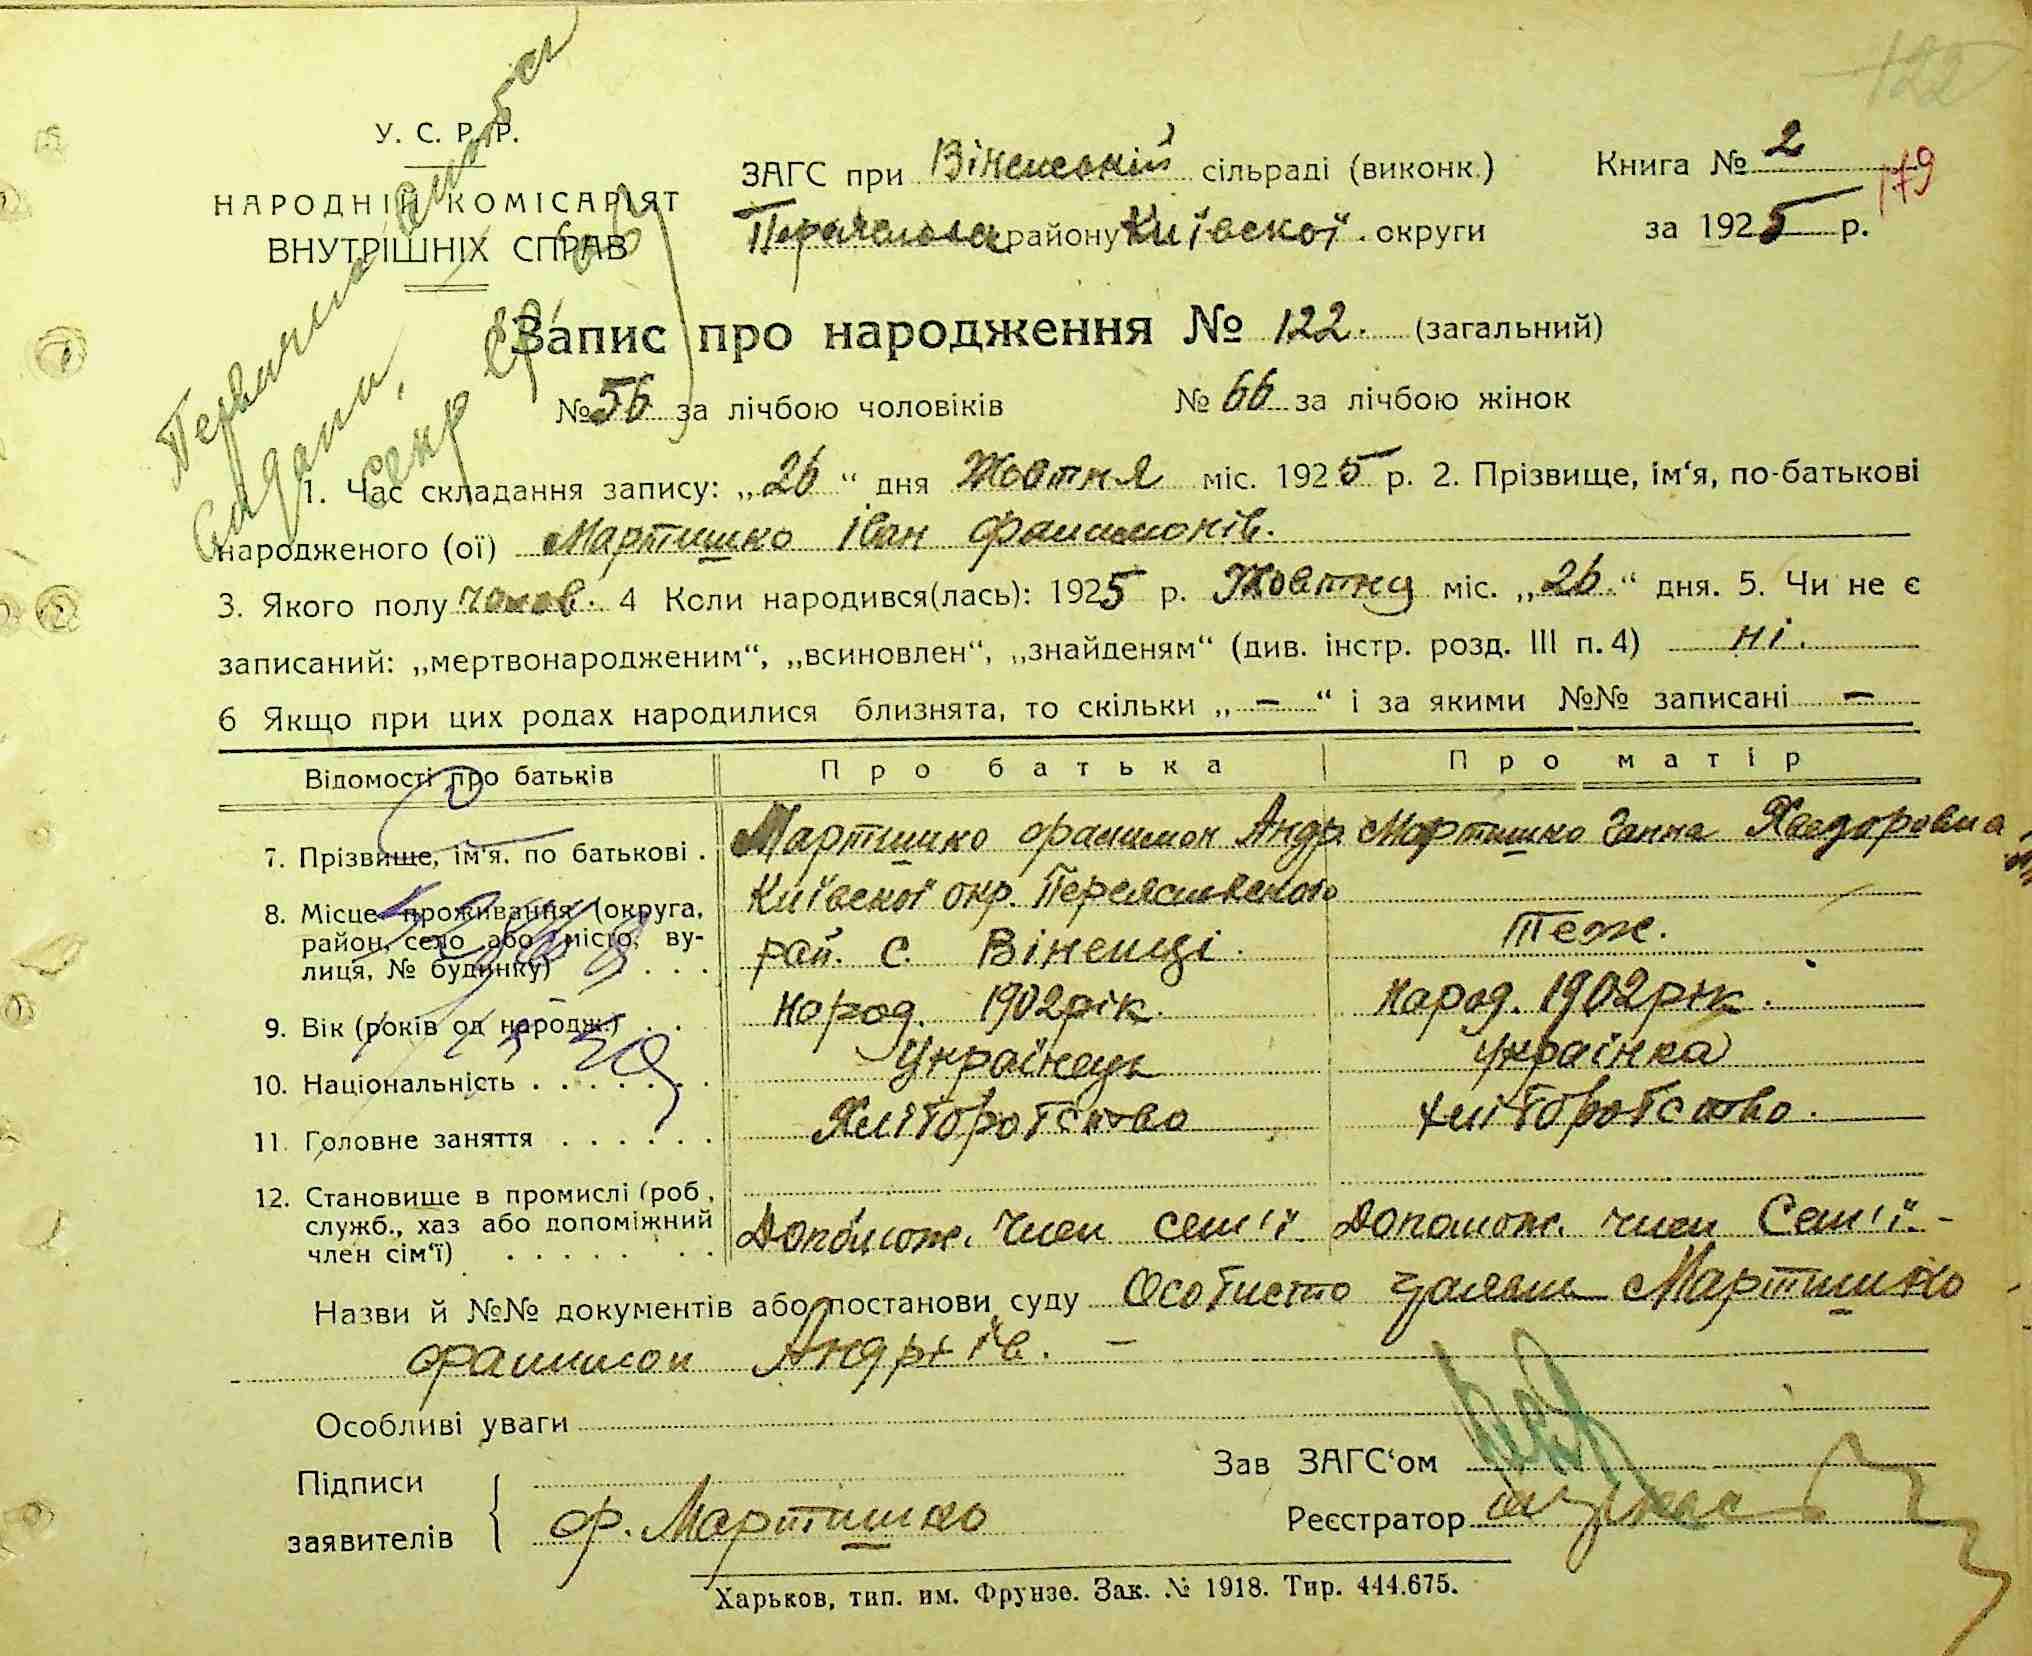 122
У. С. Р. Р.
НАРОДНІЙ КОМІСАРІЯТ
ВНУТРІШНІХ СПРАВ
ЗАГС при Віненській сільраді (виконк.)
Переяслов району Київскої округи
Книга № 2
179
за 1925 р.
Запис про народження № 122. (загальний)
№ 56 за лічбою чоловіків № 66 за лічбою жінок
1. Час складання запису: „26“ дня Жовтня міс. 1925 р. 2. Прізвище, ім‘я, по-батькові
народженого (ої) Мартишко Іван Филимонів.
3. Якого полу чолов. 4 Коли народився(лась): 1925 р. Жовтня міс. „26.“ дня. 5. Чи не є
записаний: „мертвонародженим“, „всиновлен“, „знайденям“ (див. інстр. розд. III п. 4) ні.
6 Якщо при цих родах народилися близнята, то скільки „ – “ і за якими №№ записані –
Відомості про батьків Про батька Про матір
7. Прізвище, ім‘я. по батькові . Мартишко Филимон Андр Мартишко Ганна Хведоровна
8. Місце проживання (округа, район, село або місто, вулиця, № будинку) . . . Київскої окр. Переяславского
рай. с. Віненці. Теж.
9. Вік (років од народж.) . . народ. 1902 рік. народ. 1902 рік.
10. Національність . . . . . . . Українець Українка
11. Головне заняття . . . . . . Хліборобство хліборобство.
12. Становище в промислі (роб,
служб., хаз або допоміжний
член сім‘ї) . . . . . . . . Допомож. член сем'ї. Допомож. член Сем'ї. -
Назви й №№ документів або постанови суду Особисто заяви Мартишко
Филимон Андріїв. –
Особливі уваги
Зав ЗАГС‘ом
Підписи
заявителів ф. Мартишко
Реєстратор
Харьков, тип. им. Фрунзе. Зак. № 1918. Тир. 444.675.